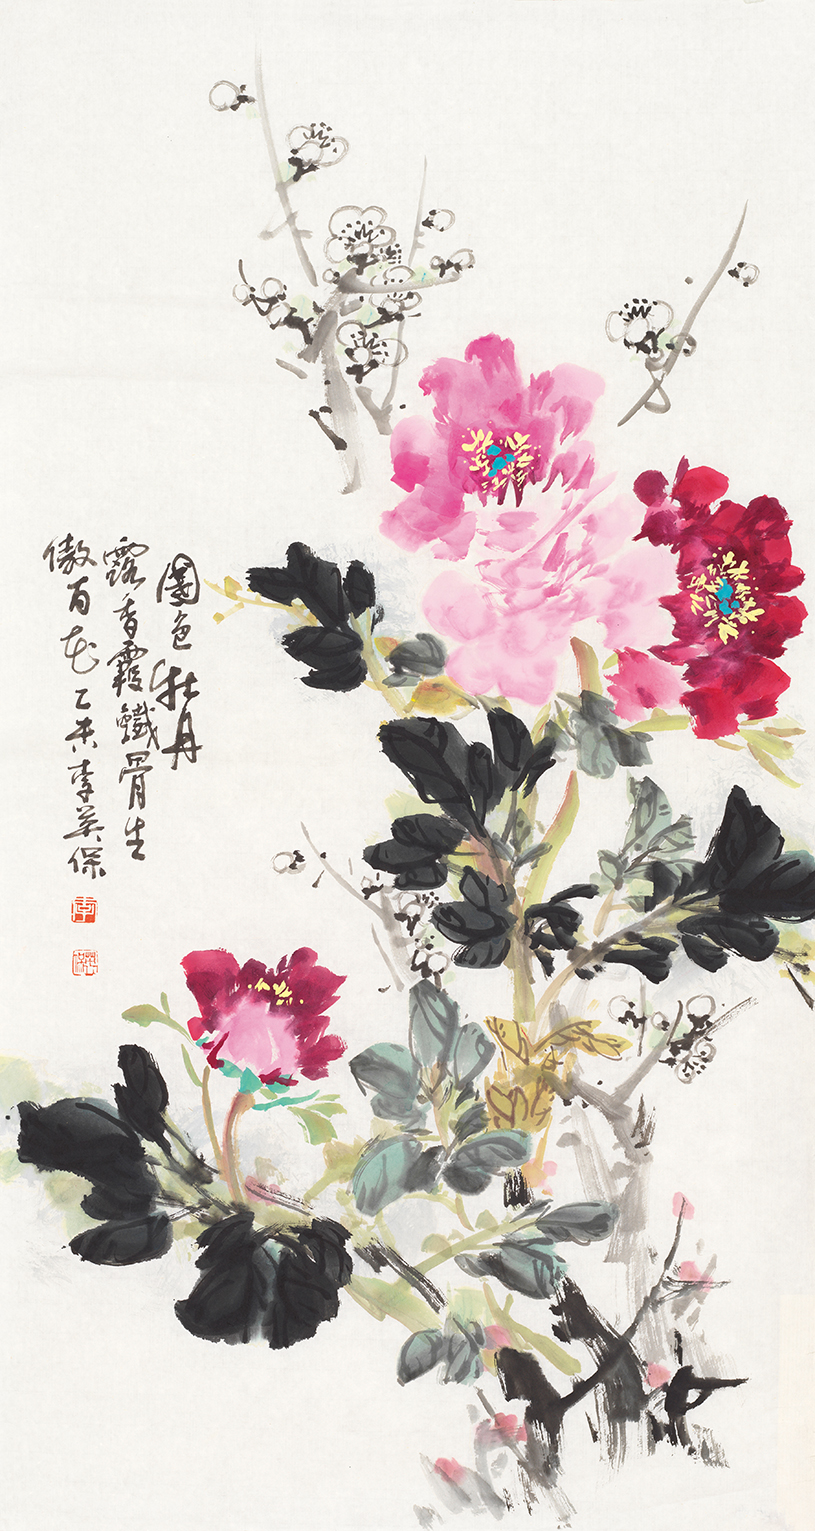 國色牡丹
露香霞鐵骨生
傲百花乙未李英保
李